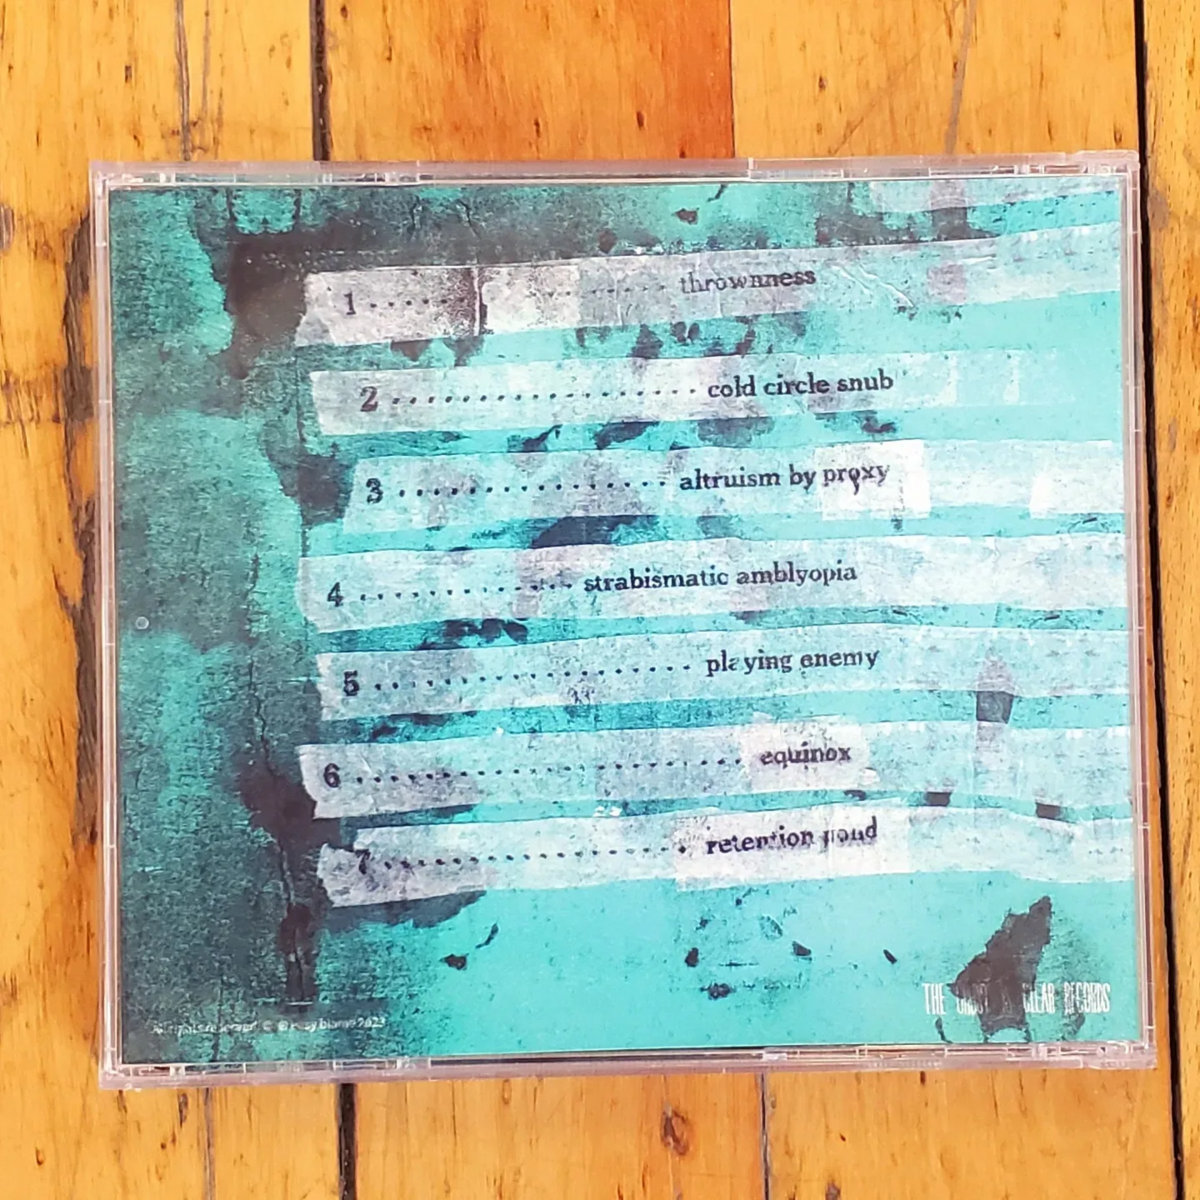 1 thrownness
2 cold circle snub
3 altruism by proxy
4 strabismatic amblyopia
5 playing enemy
6 equinox
7 retention pond
THE GHOST IS CLEAR RECORDS
2023